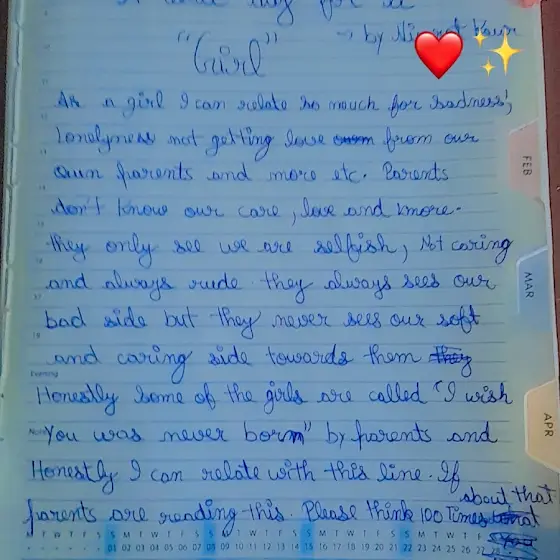 "Girl"
by
As a girl I can relate so much for sadness,
Lonelyness not getting love from our
Own parents and more etc. Parents
don't know our care, love and more.
they only see we are selfish, Not caring
and always rude they always sees our
bad side but they never sees our soft
and caring side towards them they
Evening
Honestly Some of the girls are called "I wish
You was never born" by parents and
Honestly I can relate with this line. If
about that
parents are reading this. Please think 100 Times
FEB
MAR
APR
M T W T F S S M T W T F S S M T W T F S S M T W T F S S
01 02 03 04 05 06 07 08 09 10 11 12 13 14 15 16 17 18 19 20 21 22 23 24 25 26